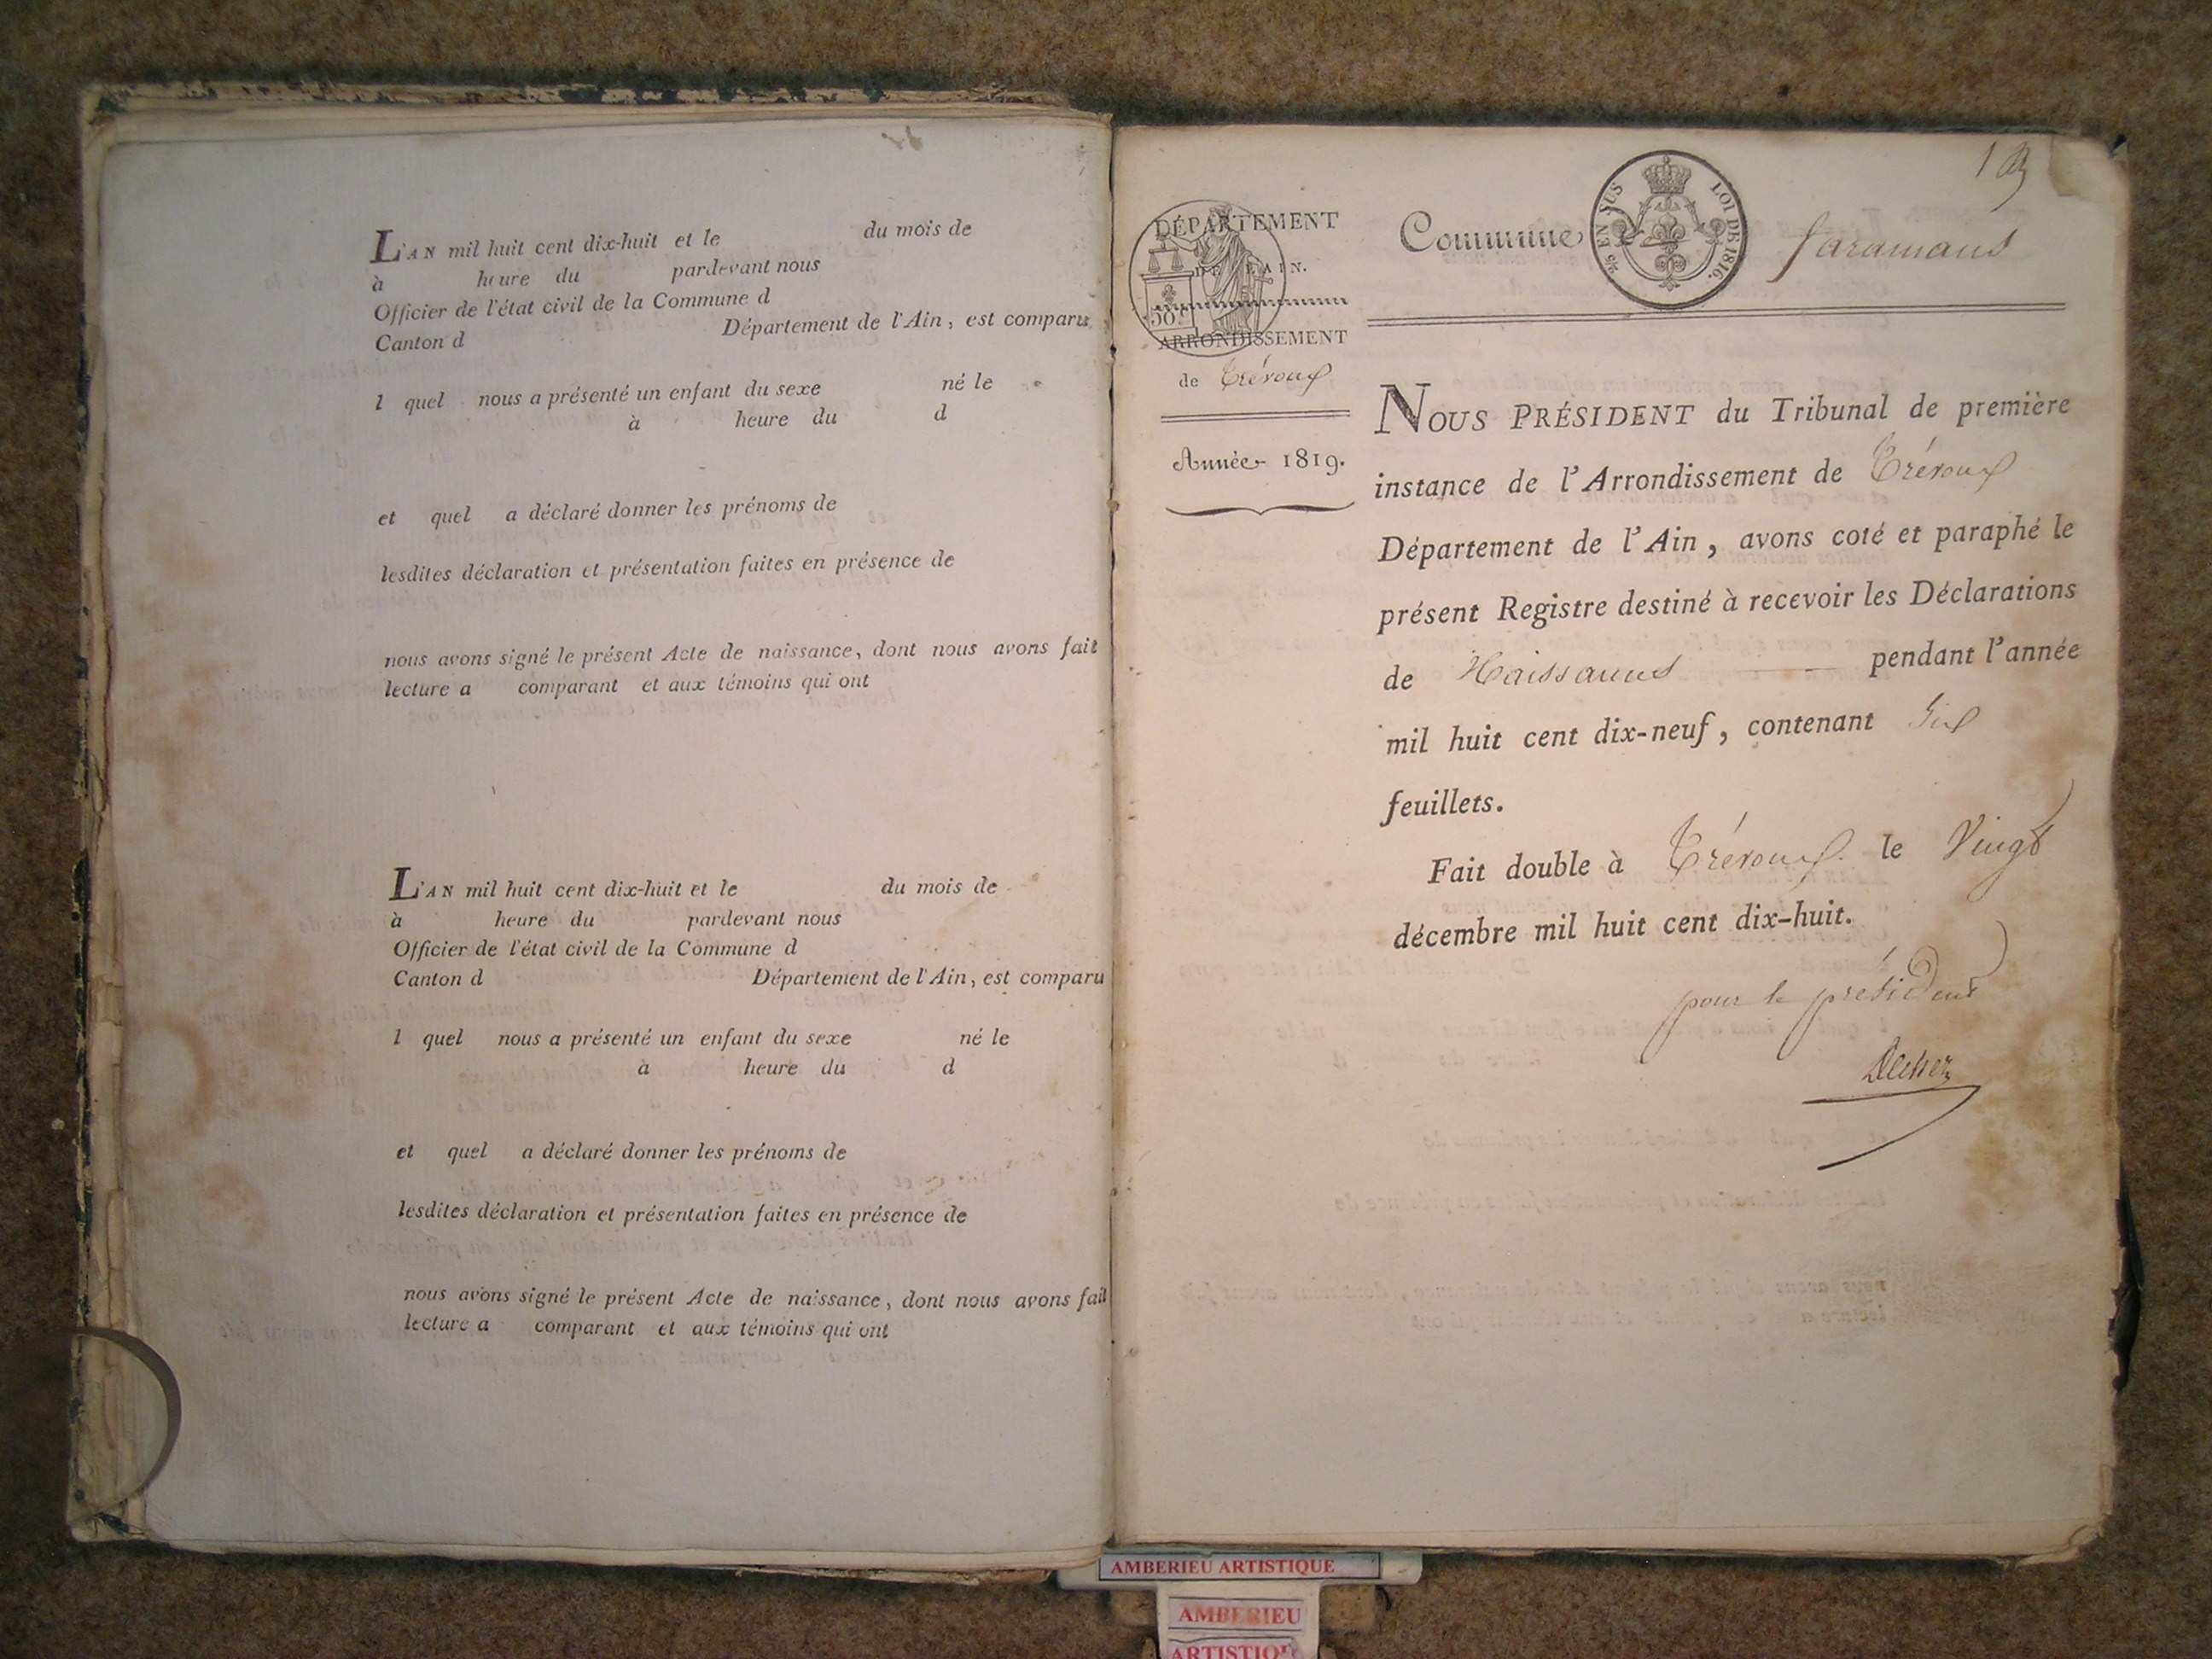 L'AN mil huit cent dix-huit et le du mois de
à heure du pardevant nous
Officier de l'état civil de la Commune d
Canton d Département de l'Ain, est comparu
l quel nous a présenté un enfant du sexe né le
à heure du d
et quel a déclaré donner les prénoms de
lesdites déclaration et présentation faites en présence de
nous avons signé le présent Acte de naissance, dont nous avons fait
lecture a comparant et aux témoins qui ont
L'AN mil huit cent dix-huit et le du mois de
à heure du pardevant nous
Officier de l'état civil de la Commune d
Canton d Département de l'Ain, est comparu
l quel nous a présenté un enfant du sexe né le
à heure du d
et quel a déclaré donner les prénoms de
lesdites déclaration et présentation faites en présence de
nous avons signé le présent Acte de naissance, dont nous avons fait
lecture a comparant et aux témoins qui ont
DÉPARTEMENT
DE L'AIN.
50
ARRONDISSEMENT
de Trévoux
Année 1819.
Commune faramans
EN SUS LOI DE 1816.
NOUS PRÉSIDENT du Tribunal de première
instance de l'Arrondissement de Trévoux
Département de l'Ain, avons coté et paraphé le
présent Registre destiné à recevoir les Déclarations
de Naissances pendant l'année
mil huit cent dix-neuf, contenant Six
feuillets.
Fait double à Trévoux le Vingt
décembre mil huit cent dix-huit.
pour le président
AMBERIEU ARTISTIQUE
AMBERIEU
ARTISTIQUE